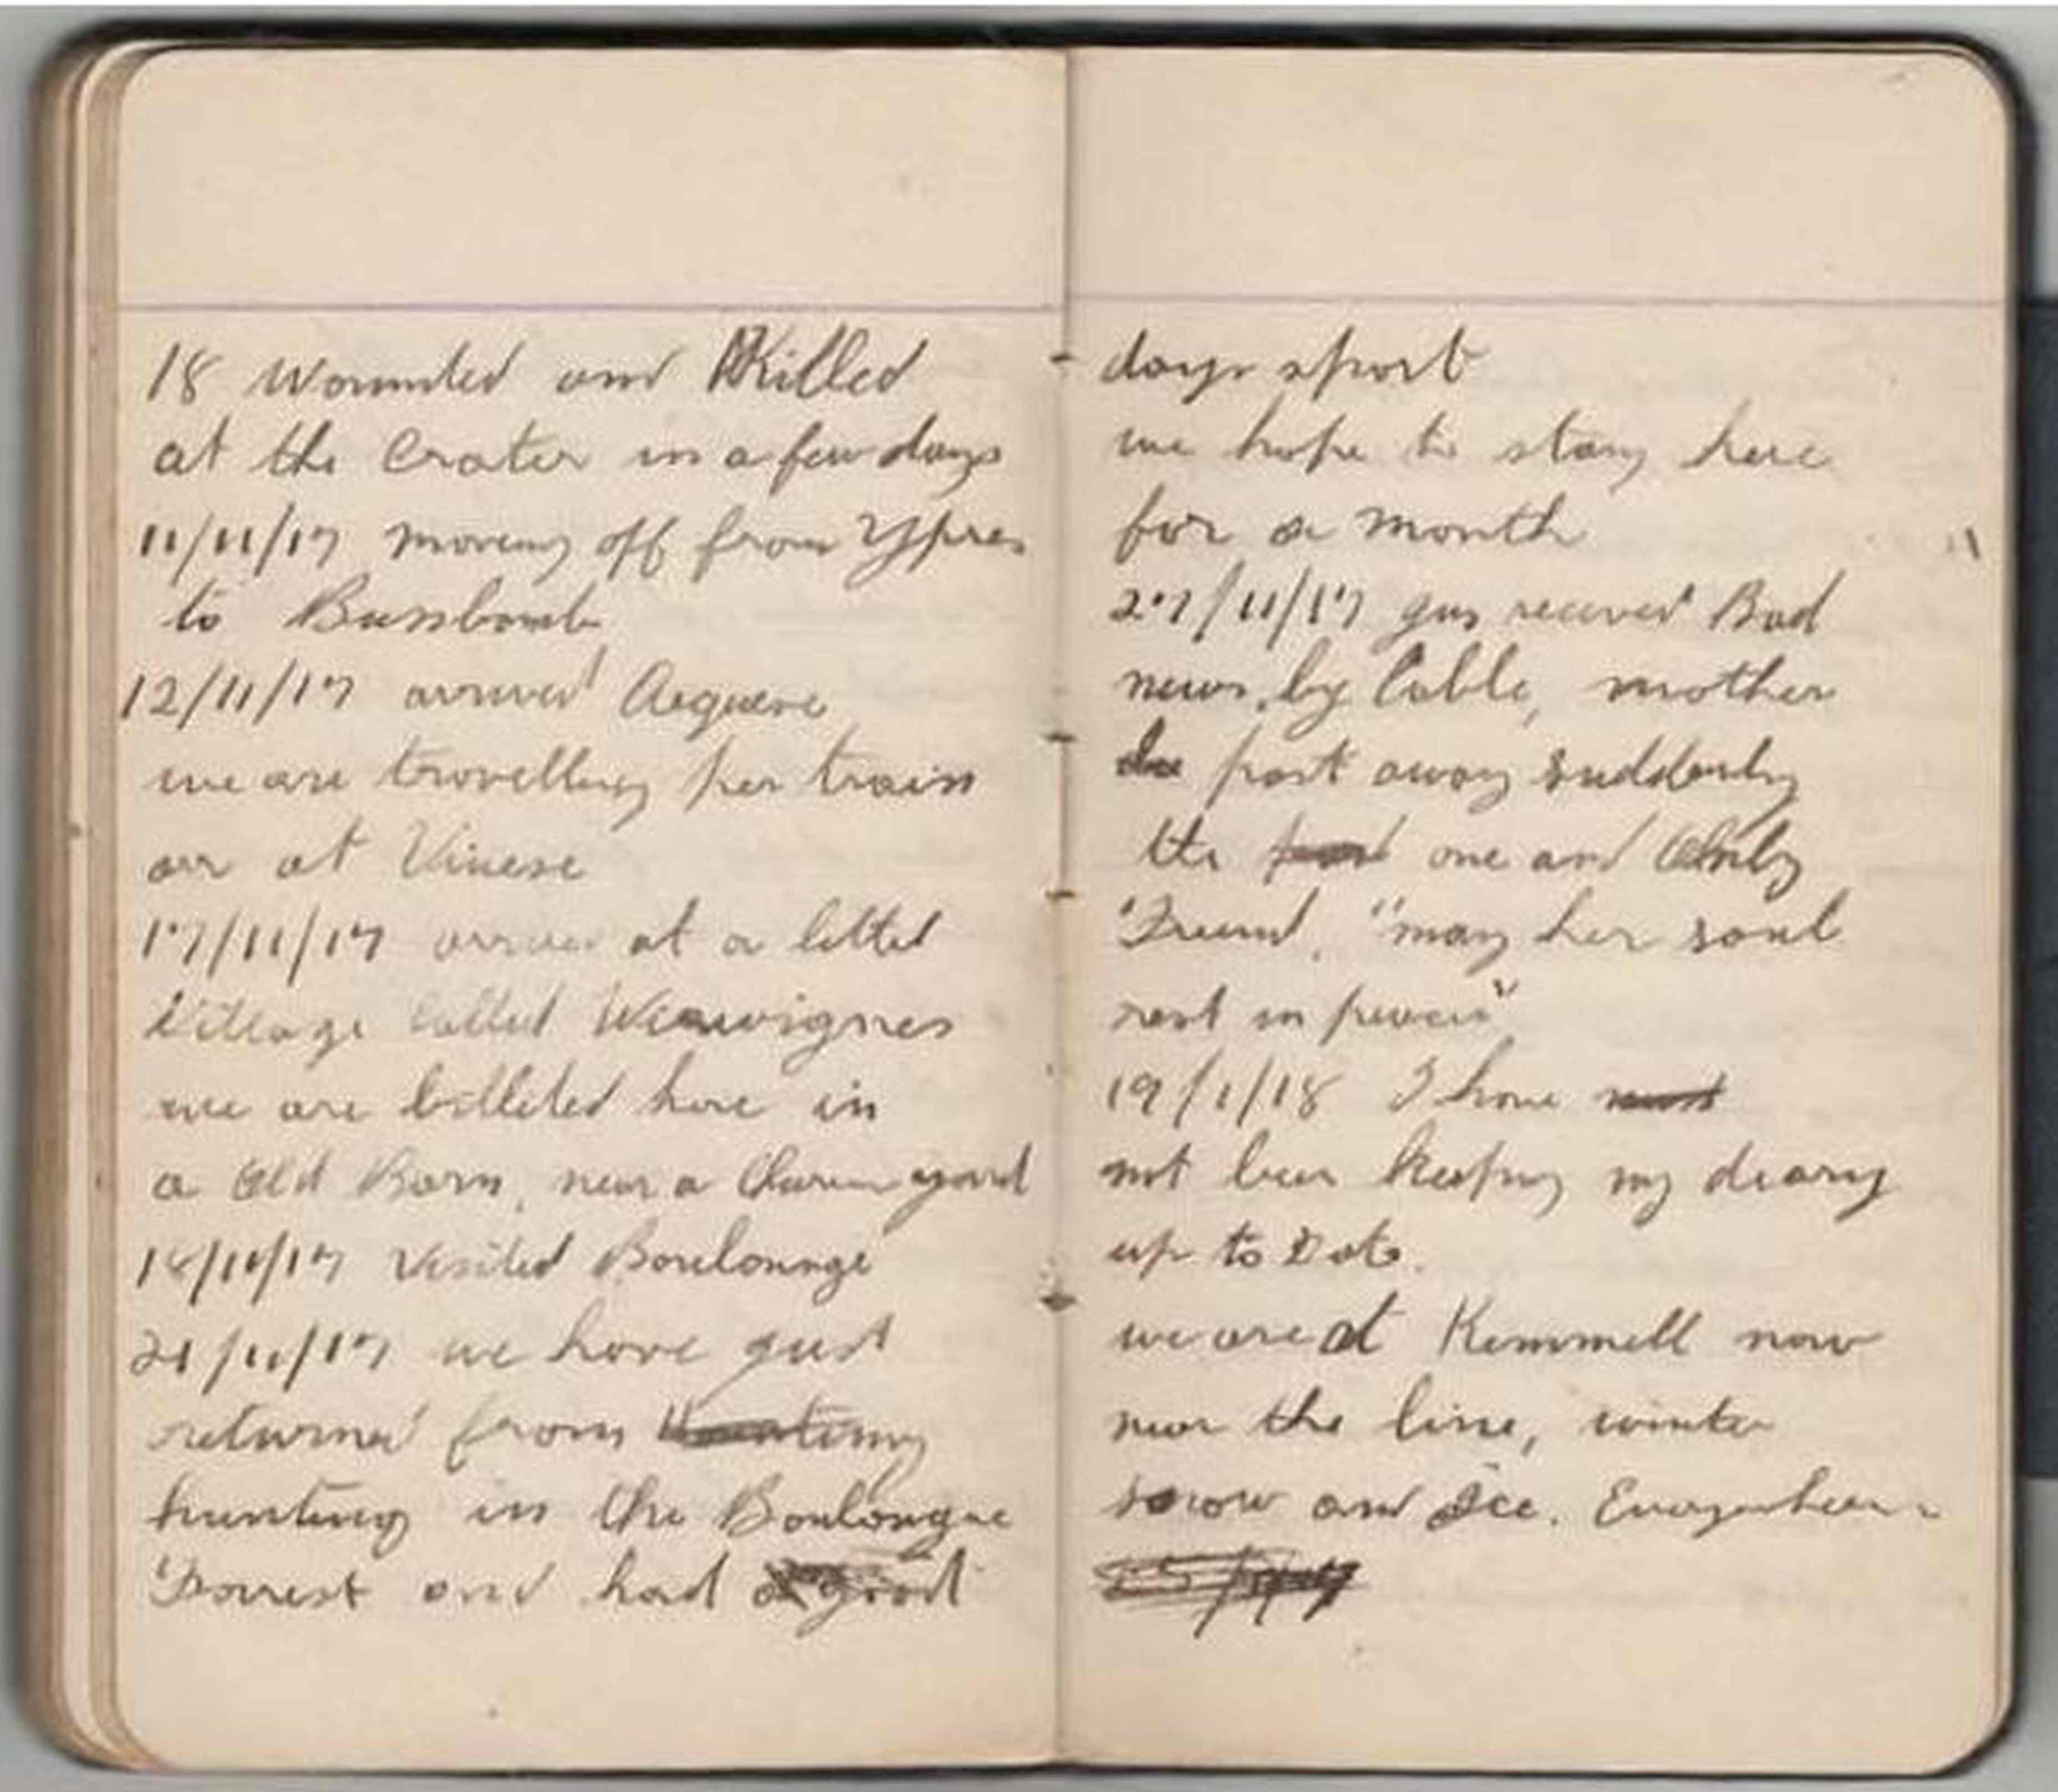 18 Wounded and Killed
at the Crater in a few days
11/11/17 moveing off from Ypres
to Bussboomb
12/11/17 arrived Arquere
we are travelling per train
arr at
17/11/17 arrived at a littel
Village Called Wierwignes
we are billeted here in
a Old Barn, near a yard
18/11/17 Visited Boulounge
21/11/17 we have just
returned from Hunting
hunting in the Boulongue
Forrest and had a good
days sport
we hope to stay here
for a month
27/11/17 gus received Bad
news, by Cable, mother
past away suddenly
the one and Only
Friend. "may her soul
rest in peace"
19/1/18 I have
not been keeping my deary
up to Date.
we are at Kemmell now
near the line, winter
snow and Ice. Everywhere